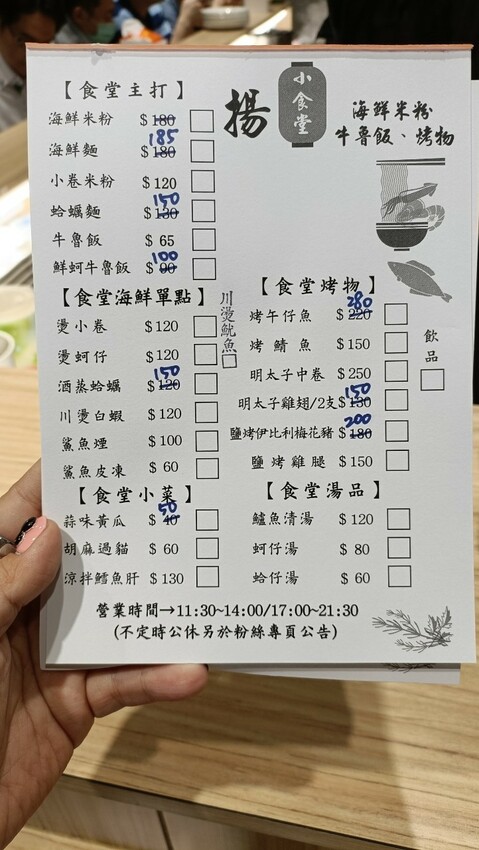 【食堂主打】
海鮮米粉 $180
185
海鮮麵 $180
小卷米粉 $120
150
蛤蠣麵 $130
牛魯飯 $ 65
100
鮮蚵牛魯飯 $ 90
揚
小食堂
海鮮米粉
牛魯飯、烤物
【食堂海鮮單點】
燙小卷 $120
燙蚵仔 $120
150
酒蒸蛤蠣 $120
川燙白蝦 $120
鯊魚煙 $100
鯊魚皮凍 $ 60
川燙魷魚
【食堂烤物】
280
烤午仔魚 $220
烤鯖魚 $150
明太子中卷 $250
150
明太子雞翅/2支$130
200
鹽烤伊比利梅花豬 $180
鹽烤雞腿 $150
飲品
【食堂小菜】
50
蒜味黃瓜 $ 40
胡麻過貓 $ 60
涼拌鱈魚肝 $130
【食堂湯品】
鱸魚清湯 $ 120
蚵仔湯 $ 80
蛤仔湯 $ 60
營業時間→11:30~14:00/17:00~21:30
(不定時公休另於粉絲專頁公告)